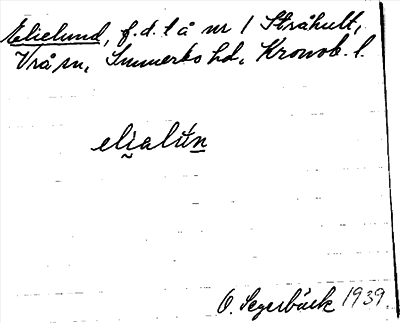 Elielund, f.d. l å nr 1 Stråhult,
Vrå sn, Sunnerbo hd, Kronob. l.
elialun
O. Segerbäck 1939.